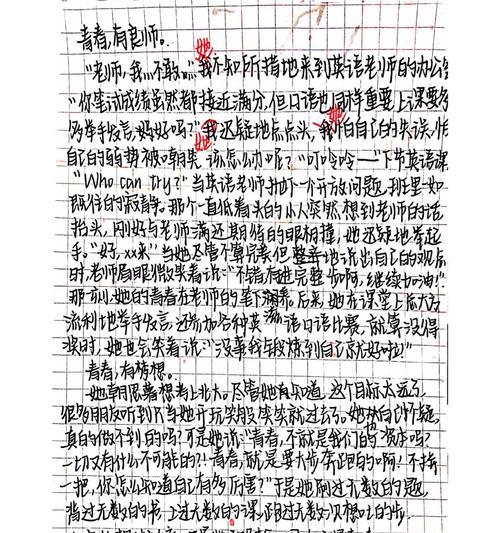 青春,有良师。
"老师,我…不敢。"她我不知所措地来到英语老师的办公
"你笔试成绩虽然都接近满分,但口语也同样重要,上课要多
多举手发言,好好吗?"她我迟疑地点点头,她我怕自己的失误,怕
自己的弱势被嘲笑,该怎么办呢?"叮呤呤——"下节英语课
"Who can try?"当英语老师抛下一个开放问题,班里一如
既往的寂静。那个一直低着头的小人突然想到老师的话
抬头,刚好与老师满还期待的眼相撞,她迟疑地举起
手。"好,xx来"当她尽管不算完美但整地说出自己的观
时,老师眉眼微笑着说:"不错有进完整步啊,继续加油!"
那一刻,她的青春在老师的笔下。后来,她在课堂上大方
流利地举手发言,还参加各种英语口语比赛,就算没得
奖时,她也会笑着说:"没事我锻炼到自己就好啦!"
青春,有梦想。
她朝思暮想考上北大。尽管她知道,这个目标太远了,
很多朋友听到只当她开玩笑般笑笑就过去了。她自个疑,
真的做不到的吗?可是她说:"青春,不就是我们的资本吗?
一切又有什么不可能的?!青春,就是要大步奔跑的啊!不拼
一把,你怎么知道自己有多厉害?"于是她刷过无数的题,
背过无数的书,上过无数的课,跑过无数次的步,